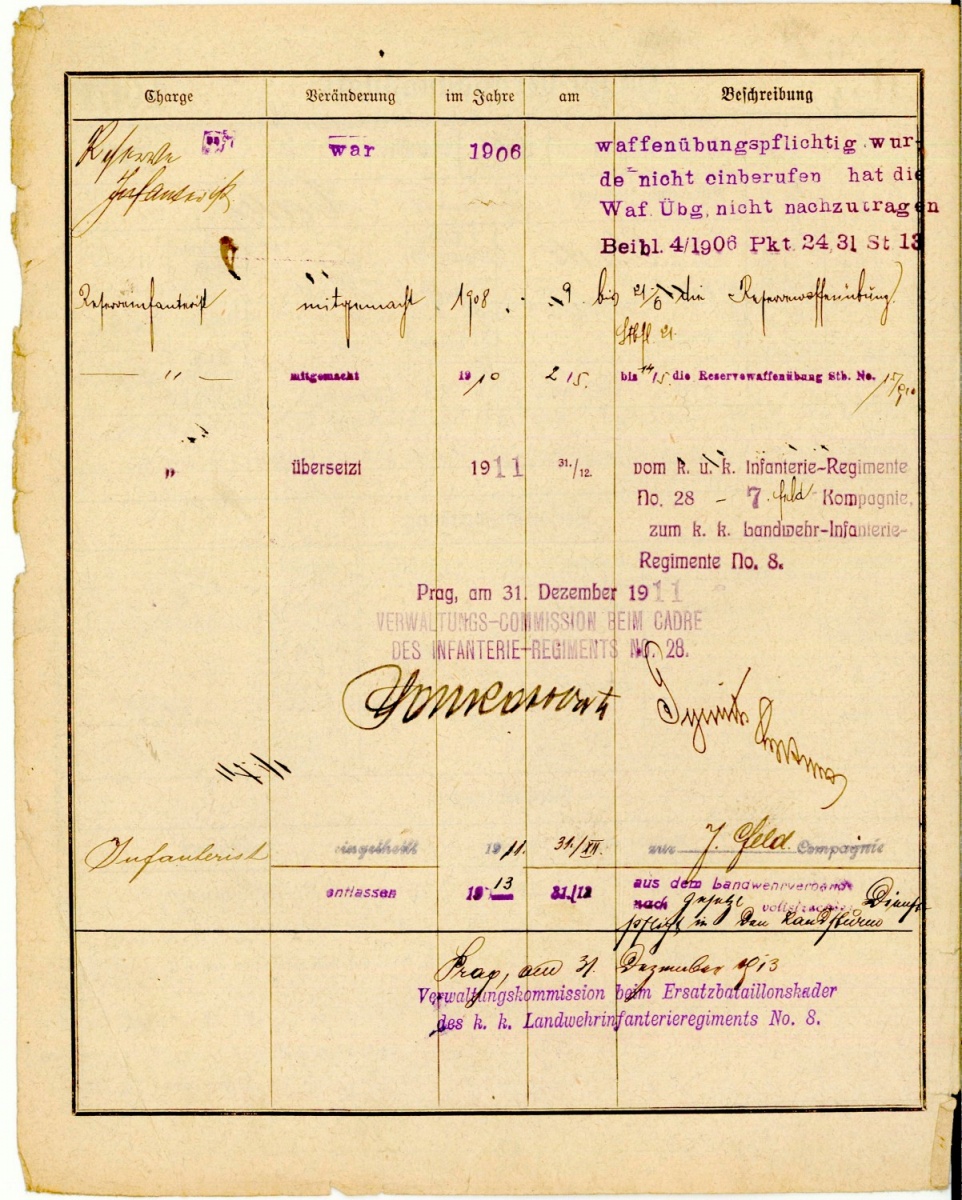 Charge Veränderung im Jahre am Beschreibung
Reserve war 1906 waffenübungspflichtig wur-
Infanterist de nicht einberufen hat die
Waf. Übg, nicht nachzutragen
Beibl. 4/1906 Pkt. 24,31 St 13
Reserveinfanterist mitgemacht 1908 9 bis 21/6 die Reservewaffenübung
— " — mitgemacht 1910 2/5. bis 14/5. die Reservewaffenübung Stb. No. 15/910
" übersetzt 1911 31./12. vom k. u. k. Infanterie-Regimente
No. 28 – 7. feld Kompagnie,
zum k. k. Landwehr-Infanterie-
Regimente No. 8.
Prag, am 31. Dezember 1911
VERWALTUNGS-COMMISSION BEIM CADRE
DES INFANTERIE-REGIMENTS NO. 28.
Infanterist eingetheilt 1911. 31./XII. zur 7. Feld. Compagnie
entlassen 1913 31./12 aus dem Landwehrverbande
nach gesetzl. vollstreckter Dienst-
pflicht in den Landsturm
Prag, am 31. Dezember 1913
Verwaltungskommission beim Ersatzbataillonskader
des k. k. Landwehrinfanterieregiments No. 8.